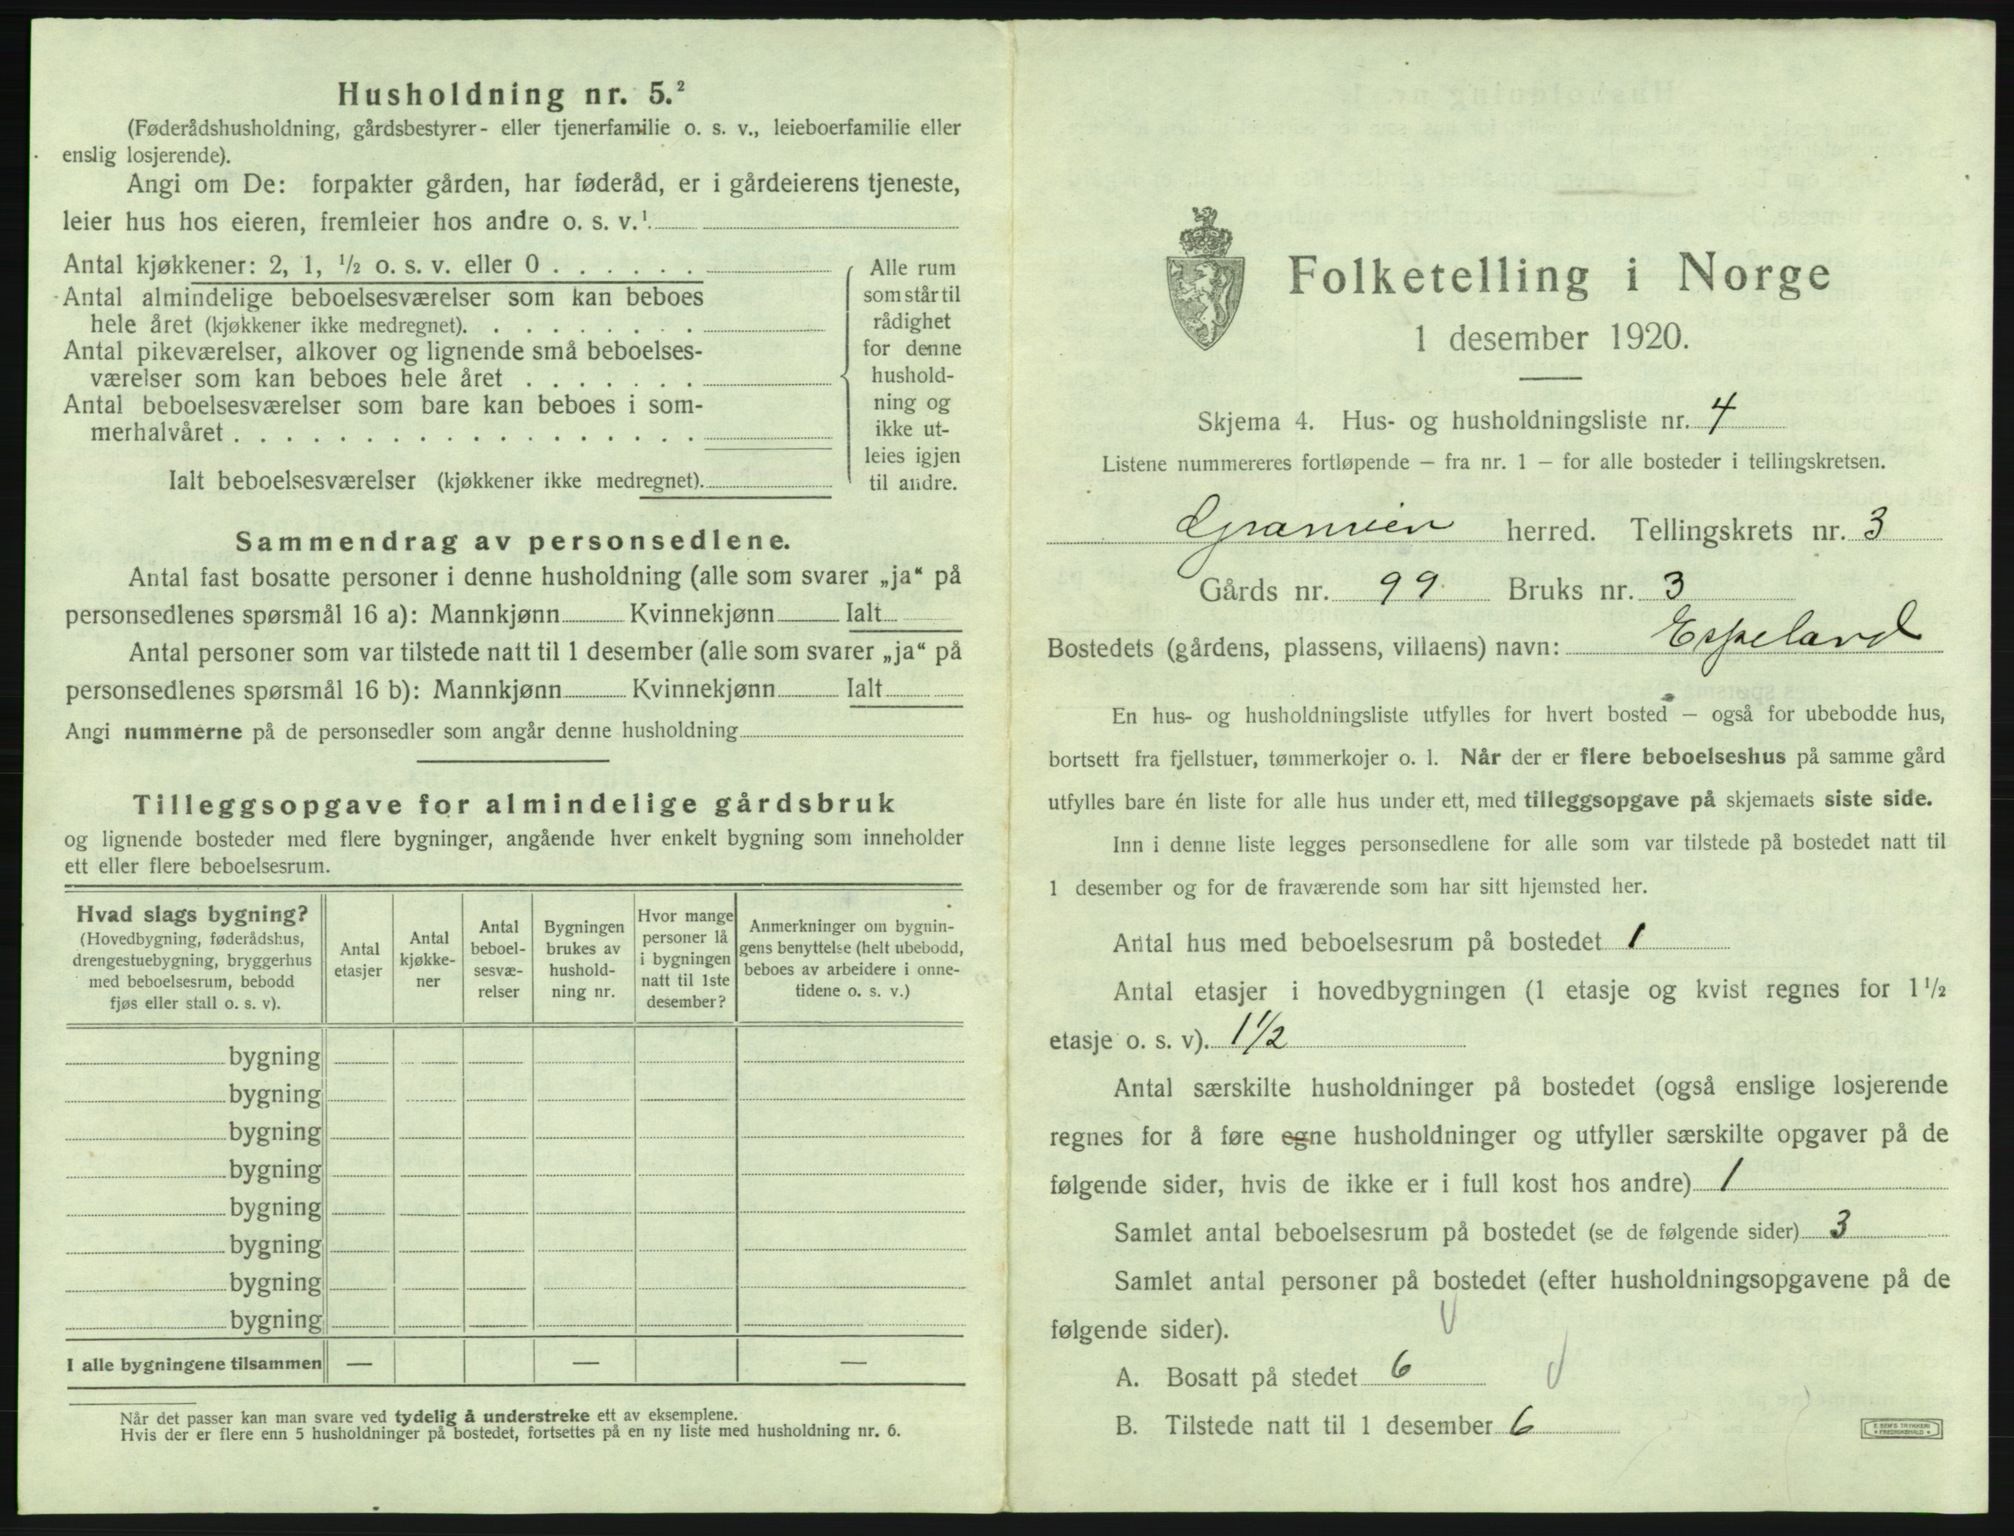 Husholdning nr. 5.²
(Føderådshusholdning, gårdsbestyrer- eller tjenerfamilie o. s. v., leieboerfamilie eller
enslig losjerende).
Angi om De: forpakter gården, har føderåd, er i gårdeierens tjeneste,
leier hus hos eieren, fremleier hos andre o. s. v.¹
Antal kjøkkener: 2, 1, ½ o. s. v. eller 0 . . . . . .
Antal almindelige beboelsesværelser som kan beboes
hele året (kjøkkener ikke medregnet). . . . . . . . .
Antal pikeværelser, alkover og lignende små beboelses-
værelser som kan beboes hele året . . . . . . .
Antal beboelsesværelser som bare kan beboes i som-
merhalvåret . . . . . . . . . . . . . . . . . .
Ialt beboelsesværelser (kjøkkener ikke medregnet).
Alle rum
som står til
rådighet
for denne
hushold-
ning og
ikke ut-
leies igjen
til andre.
Sammendrag av personsedlene.
Antal fast bosatte personer i denne husholdning (alle som svarer „ja“ på
personsedlenes spørsmål 16 a): Mannkjønn Kvinnekjønn Ialt
Antal personer som var tilstede natt til 1 desember (alle som svarer „ja“ på
personsedlenes spørsmål 16 b): Mannkjønn Kvinnekjønn Ialt
Angi nummerne på de personsedler som angår denne husholdning
Tilleggsopgave for almindelige gårdsbruk
og lignende bosteder med flere bygninger, angående hver enkelt bygning som inneholder
ett eller flere beboelsesrum.
Hvad slags bygning?
(Hovedbygning, føderådshus,
drengestuebygning, bryggerhus
med beboelsesrum, bebodd
fjøs eller stall o. s. v).
Antal
etasjer
Antal
kjøkke-
ner
Antal
beboel-
sesvæ-
relser
Bygningen
brukes av
hushold-
ning nr.
Hvor mange
personer lå
i bygningen
natt til 1ste
desember?
Anmerkninger om bygnin-
gens benyttelse (helt ubebodd,
beboes av arbeidere i onne-
tidene o. s. v.)
bygning
bygning
bygning
bygning
bygning
bygning
bygning
bygning
I alle bygningene tilsammen — — —
Når det passer kan man svare ved tydelig å understreke ett av eksemplene.
Hvis der er flere enn 5 husholdninger på bostedet, fortsettes på en ny liste med husholdning nr. 6.
Folketelling i Norge
1 desember 1920.
Skjema 4. Hus- og husholdningsliste nr. 4
Listene nummereres fortløpende — fra nr. 1 — for alle bosteder i tellingskretsen.
Granvin herred. Tellingskrets nr. 3
Gårds nr. 99. Bruks nr. 3
Bostedets (gårdens, plassens, villaens) navn: Espeland
En hus- og husholdningsliste utfylles for hvert bosted — også for ubebodde hus,
bortsett fra fjellstuer, tømmerkojer o. l. Når der er flere beboelseshus på samme gård
utfylles bare én liste for alle hus under ett, med tilleggsopgave på skjemaets siste side.
Inn i denne liste legges personsedlene for alle som var tilstede på bostedet natt til
1 desember og for de fraværende som har sitt hjemsted her.
Antal hus med beboelsesrum på bostedet 1
Antal etasjer i hovedbygningen (1 etasje og kvist regnes for 1½
etasje o. s. v). 1½
Antal særskilte husholdninger på bostedet (også enslige losjerende
regnes for å føre egne husholdninger og utfyller særskilte opgaver på de
følgende sider, hvis de ikke er i full kost hos andre) 1
Samlet antal beboelsesrum på bostedet (se de følgende sider) 3
Samlet antal personer på bostedet (efter husholdningsopgavene på de
følgende sider).
A. Bosatt på stedet 6
B. Tilstede natt til 1 desember 6
E. SEM'S TRYKKERI
FREDRIKSHALD